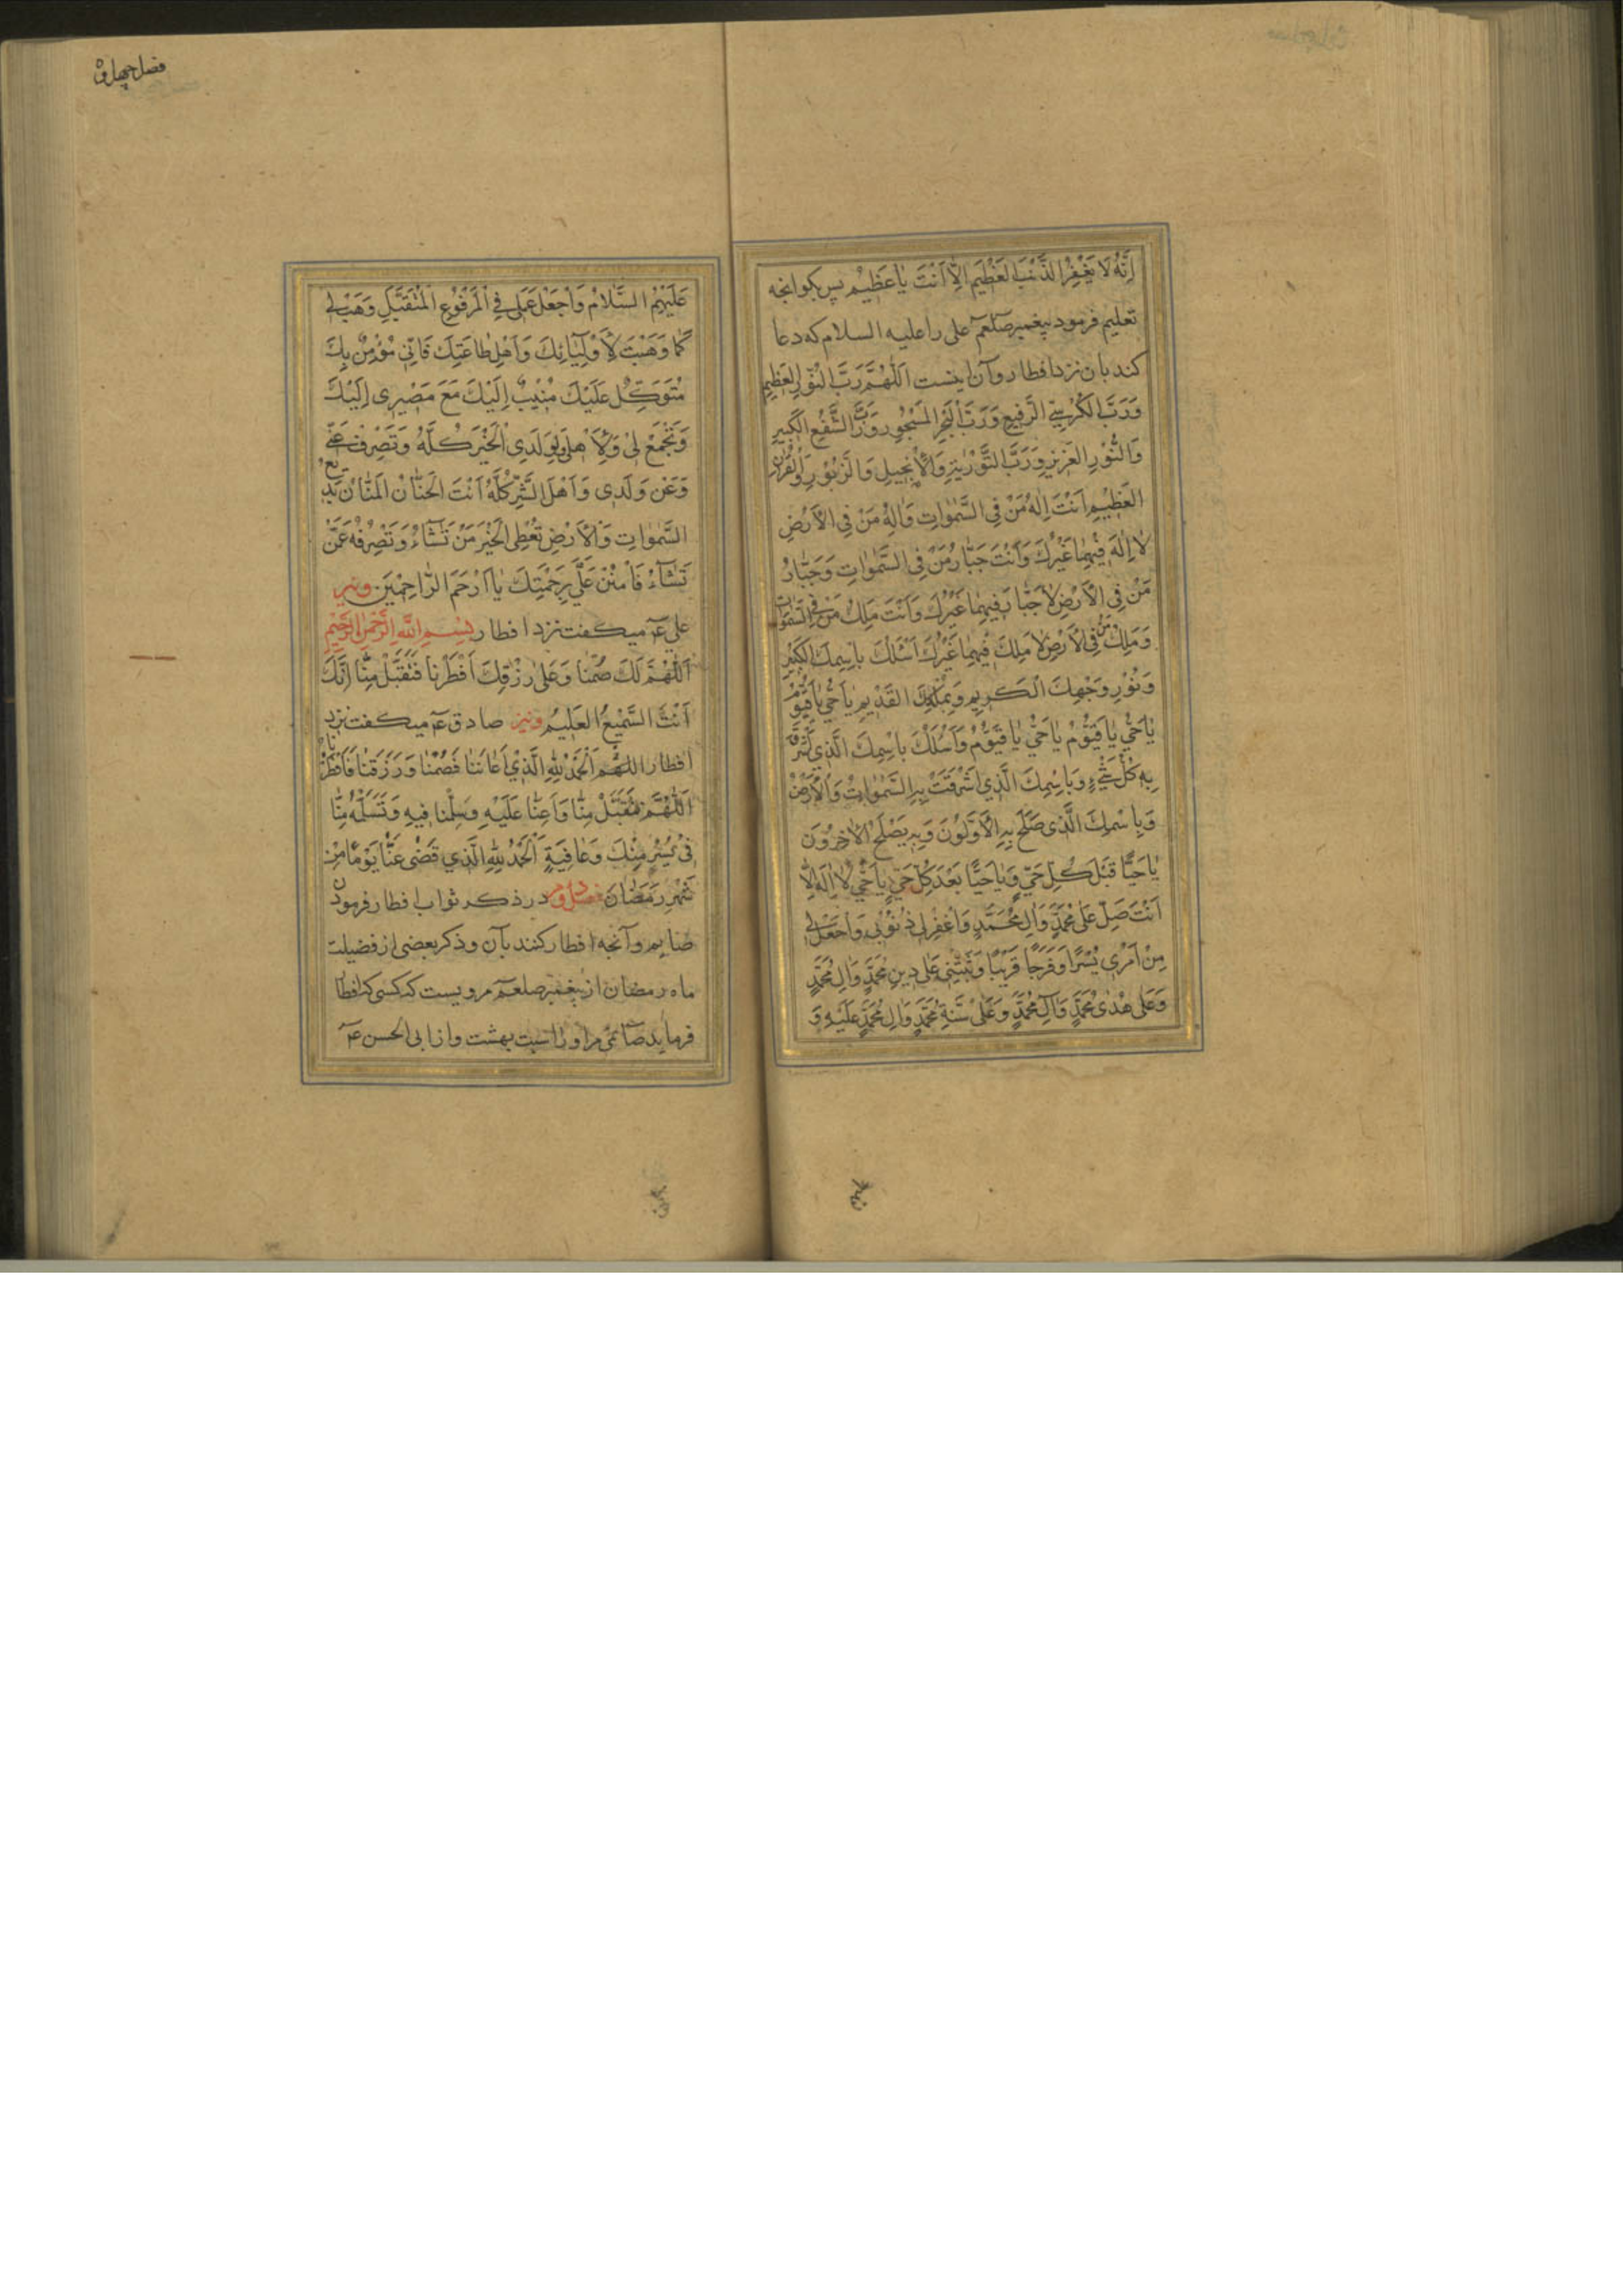 اِنَّهُ لَا يَغْفِرُ الذَّنْبَ العَظِيْمَ اِلَّا اَنْتَ يٰا عَظِيْم پس بكو انجه
تعليم فرمود پيغمبر صلعم على را عليه السلام كه دعا
كند بان نزد افطار و آن اينست اَللّٰهُمَّ رَبَّ النُّوْرِ العَظِيمِ
وَرَبَّ الكُرْسِيِّ الرَّفِيعِ وَرَبَّ الْبَحْرِ المَسْجُورِ وَرَبَّ الشَّفْعِ الكَبِيرِ
وَالنُّوْرِ العَزِيزِ وَرَبَّ التَّوْرٰيةِ وَالْاِنْجِيلِ وَالزَبُوْرِ وَالْفُرْقٰانِ
العَظِيْمِ اَنْتَ اِلٰهُ مَنْ فِى السَّمٰوٰاتِ وَاِلٰهُ مَنْ فِى الْاَرْضِ
لٰا اِلٰهَ فِيْهِمٰا غَيْرُكَ وَاَنْتَ جَبّٰارُ مَنْ فِى السَّمٰوٰاتِ وَجَبّٰارُ
مَنْ فِى الْاَرْضِ لٰا جَبّٰارَ فِيهِمٰا غَيْرُكَ وَاَنْتَ مَلِكُ مَنْ فِى السَّمٰوٰاتِ
وَمَلِكُ مَنْ فِى الْاَرْضِ لٰا مَلِكَ فِيْهِمٰا غَيْرُكَ اَسْئَلُكَ بِاسْمِكَ الكَبِيْرِ
وَنُوْرِ وَجْهِكَ الْكَرِيمِ وَبِمُلْكِكَ القَدِيمِ يٰا حَىُّ يٰا قَيُّوْمُ
يٰا حَىُّ يٰا قَيُّوْمُ يٰا حَىُّ يٰا قَيُّوْمُ وَاَسْئَلُكَ بِاسْمِكَ الَّذِي اَشْرَقَ
بِهِ كُلُّ شَيْءٍ وَبِاسْمِكَ الَّذِي اَشْرَقَتْ بِهِ السَّمٰوٰاتُ وَالْاَرْضُ
وَبِاسْمِكَ الَّذِى صَلَحَ بِهِ الْاَوَّلُوْنَ وَبِهِ يَصْلَحُ الْاٰخِرُوْنَ
يٰا حَيًّا قَبْلَ كُلِّ حَيٍّ وَيٰا حَيًّا بَعْدَ كُلِّ حَيٍّ يٰا حَيُّ لٰا اِلٰهَ اِلّٰا
اَنْتَ صَلِّ عَلٰى مُحَمَّدٍ وَاٰلِ مُحَمَّدٍ وَاغْفِرْ لِى ذُنُوْبِى وَاجْعَلْ لِى
مِنْ اَمْرِى يُسْرًا وَفَرَجًا قَرِيْبًا وَثَبِّتْنِى عَلٰى دِينِ مُحَمَّدٍ وَاٰلِ مُحَمَّدٍ
وَعَلٰى هُدٰى مُحَمَّدٍ وَاٰلِ مُحَمَّدٍ وَعَلٰى سُنَّةِ مُحَمَّدٍ وَاٰلِ مُحَمَّدٍ عَلَيْهِ وَ
عَلَيْهِمُ السَّلامُ وَاجْعَلْ عَمَلِى فِى الْمَرْفُوْعِ الْمُتَقَبَّلِ وَهَبْ لِى
كَمٰا وَهَبْتَ لِاَوْلِيٰائِكَ وَاَهْلِ طٰاعَتِكَ فَاِنِّى مُؤْمِنٌ بِكَ
مُتَوَكِّلٌ عَلَيْكَ مُنِيْبٌ اِلَيْكَ مَعَ مَصِيْرِى اِلَيْكَ
وَتَجْمَعُ لِىْ وَلِاَهْلِى وَلِوَلَدِى الْخَيْرَ كُلَّهُ وَتَصْرِفُ عَنِّى
وَعَنْ وَلَدِى وَاَهْلِى الشَّرَّ كُلَّهُ اَنْتَ الحَنّٰانُ المَنّٰانُ بَدِيعُ
السَّمٰوٰاتِ وَالْاَرْضِ تُعْطِى الْخَيْرَ مَنْ تَشٰاءُ وَتَصْرِفُهُ عَمَّنْ
تَشٰاءُ فَامْنُنْ عَلَىَّ بِرَحْمَتِكَ يٰا اَرْحَمَ الرّٰاحِمِيْنَ ونيز
على عَ ميكفت نزد افطار بِسْمِ اللهِ الرَّحْمٰنِ الرَّحِيْمِ
اَللّٰهُمَّ لَكَ صُمْنٰا وَعَلٰى رِزْقِكَ اَفْطَرْنٰا فَتَقَبَّلْ مِنّٰا اِنَّكَ
اَنْتَ السَّمِيْعُ العَلِيْمُ ونيز صادق عَ ميكفت نزد
افطار اللّٰهُمَّ اَلْحَمْدُ لِلّٰهِ الَّذِيْ اَعٰانَنٰا فَصُمْنٰا وَرَزَقَنٰا فَاَفْطَرْنٰا
اَللّٰهُمَّ تَقَبَّلْ مِنّٰا وَاَعِنّٰا عَلَيْهِ وَسَلِّمْنٰا فِيهِ وَتَسَلَّمْهُ مِنّٰا
فِىْ يُسْرٍ مِنْكَ وَعٰافِيَةٍ اَلْحَمْدُ لِلّٰهِ الَّذِي قَضٰى عَنّٰا يَوْمًا مِنْ
شَهْرِ رَمَضٰانَ فصل دوم در ذكر ثواب افطار فرمودن
صٰايم و آنچه افطار كنند بآن و ذكر بعضى از فضيلت
ماه رمضان از پيغمبر صلعم مرويست كه كسى كه افطار
فرمايد صائمى مر او راست بهشت و از ابى الحسن عَ